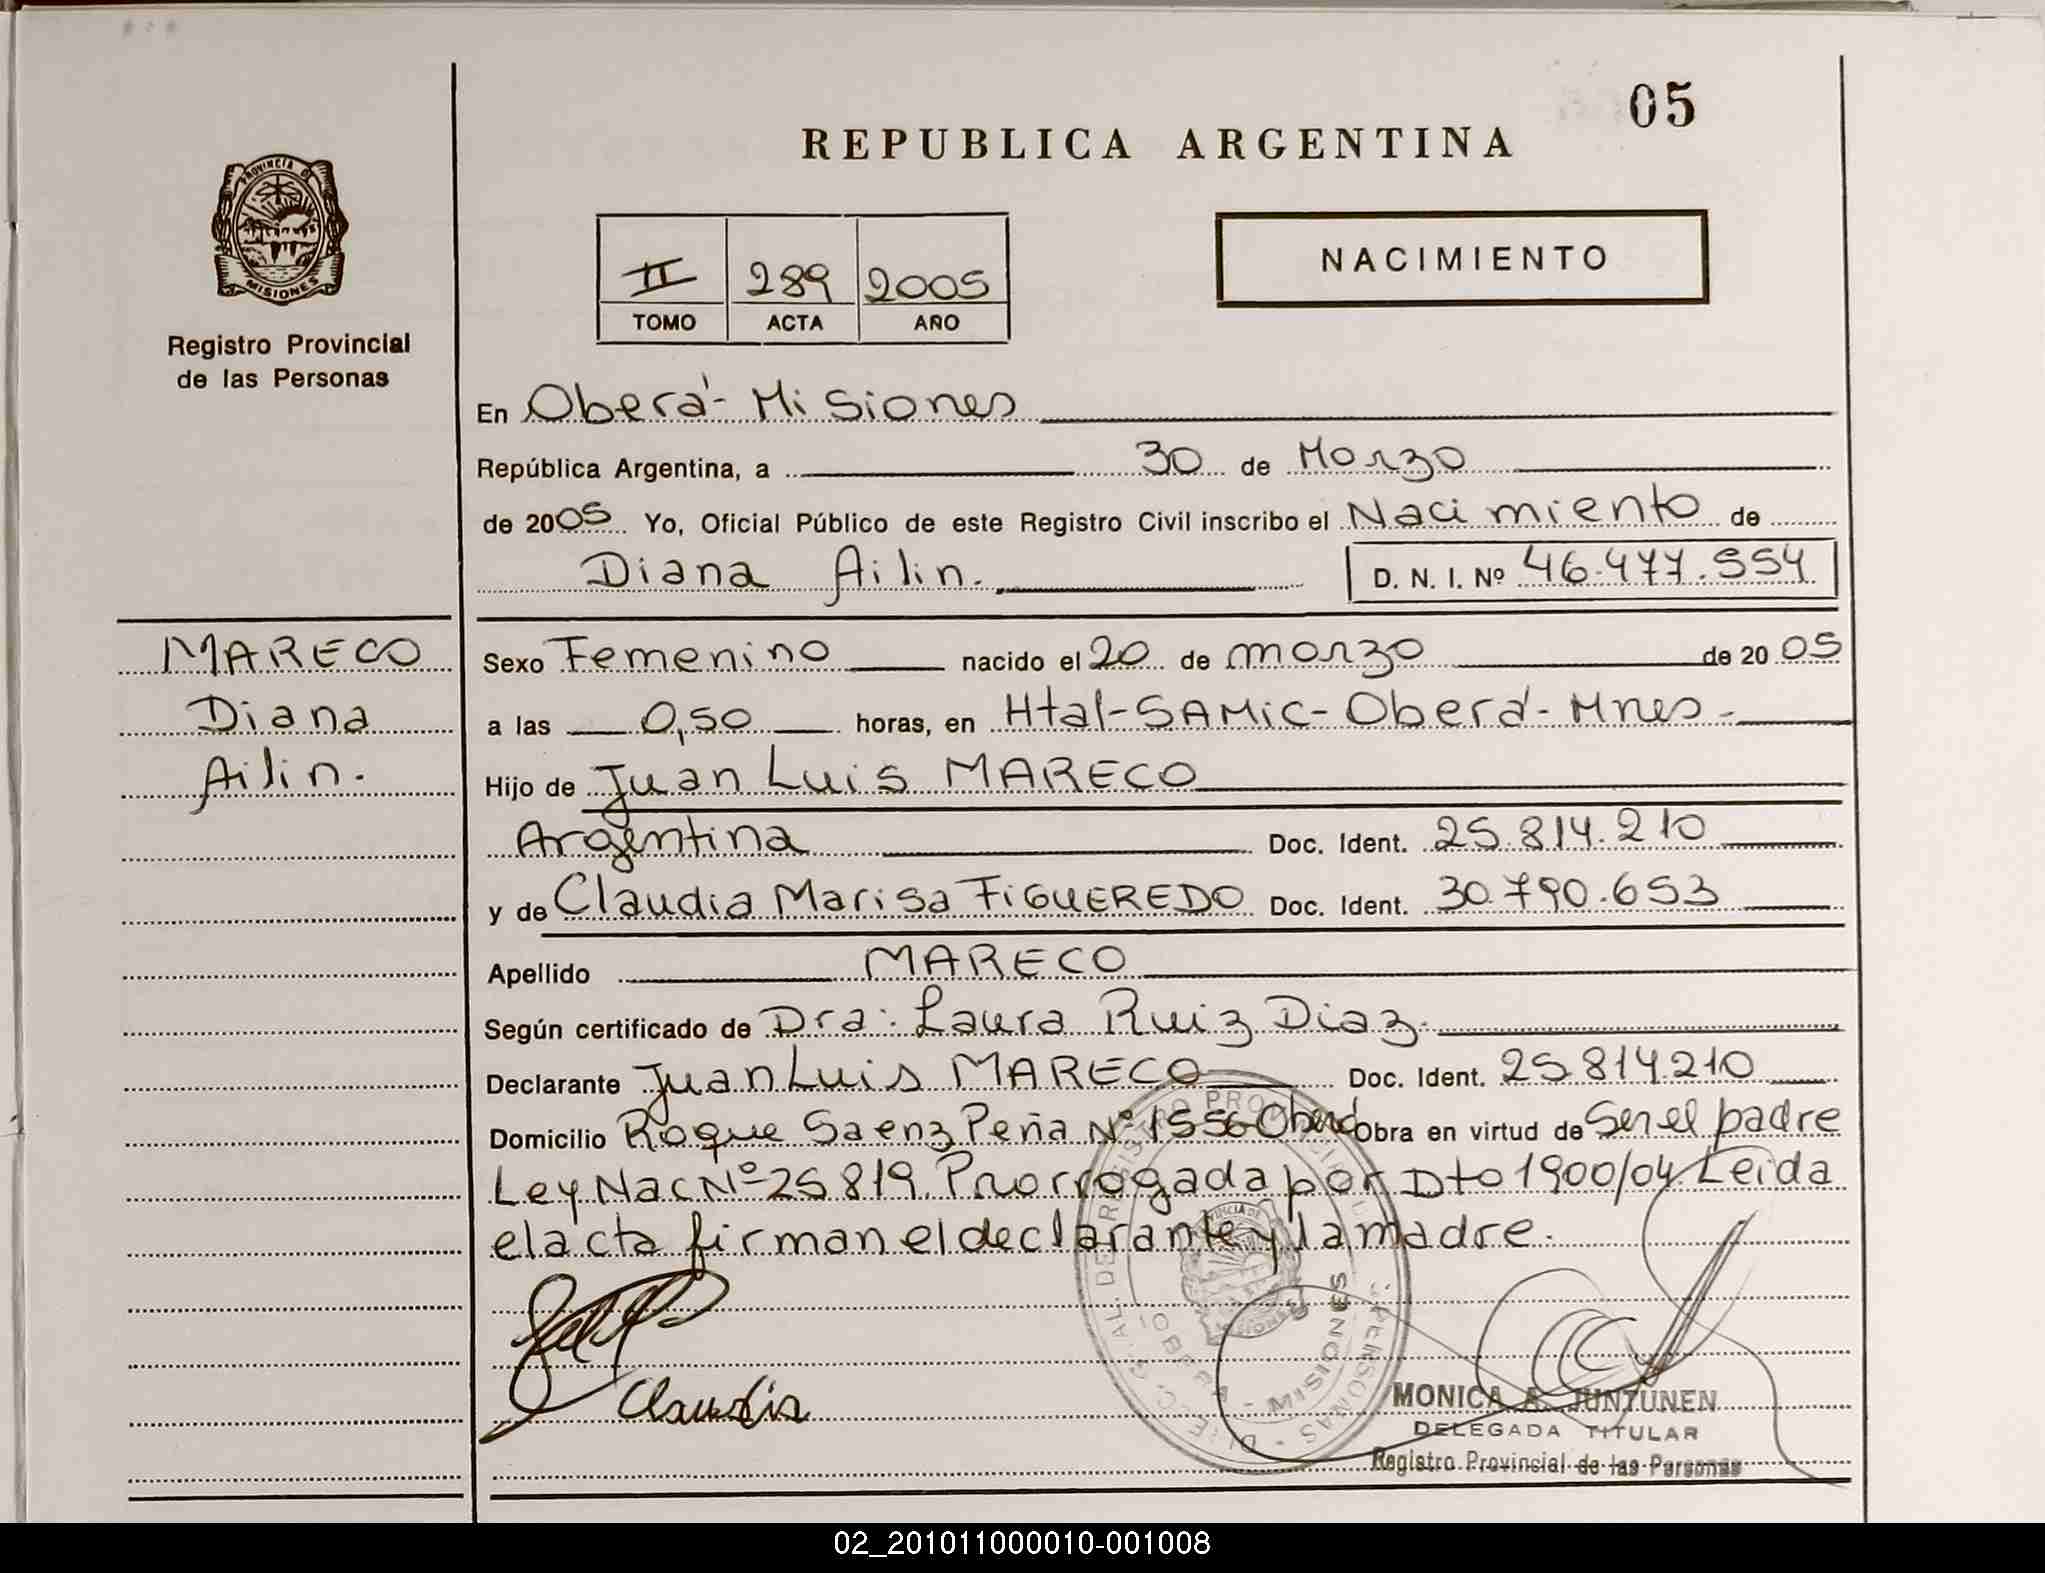 05
REPUBLICA ARGENTINA
PROVINCIA DE
MISIONES
Registro Provincial
de las Personas
NACIMIENTO
II 289 2005
TOMO ACTA AÑO
En Oberá - Misiones
República Argentina, a 30 de Marzo
de 2005 Yo, Oficial Público de este Registro Civil inscribo el Nacimiento de
Diana Ailin. D. N. I. Nº 46.477.554
MARECO
Diana
Ailin.
Sexo Femenino nacido el 20 de marzo de 2005
a las 0,50 horas, en Htal-SAMIC-Oberá-Mnes-
Hijo de Juan Luis MARECO
Argentina Doc. Ident. 25.814.210
y de Claudia Marisa FIGUEREDO Doc. Ident. 30.790.653
Apellido MARECO
Según certificado de Dra: Laura Ruiz Diaz.
Declarante Juan Luis MARECO Doc. Ident. 25.814.210
Domicilio Roque Saenz Peña Nº 1556 Oberá Obra en virtud de Ser el padre
Ley Nac Nº 25819. Prorrogada por Dto 1900/04. Leida
el acta firman el declarante y la madre.
Claudia
MISIONES
MONICA A. JUNTUNEN
DELEGADA TITULAR
Registro Provincial de las Personas
02_201011000010-001008